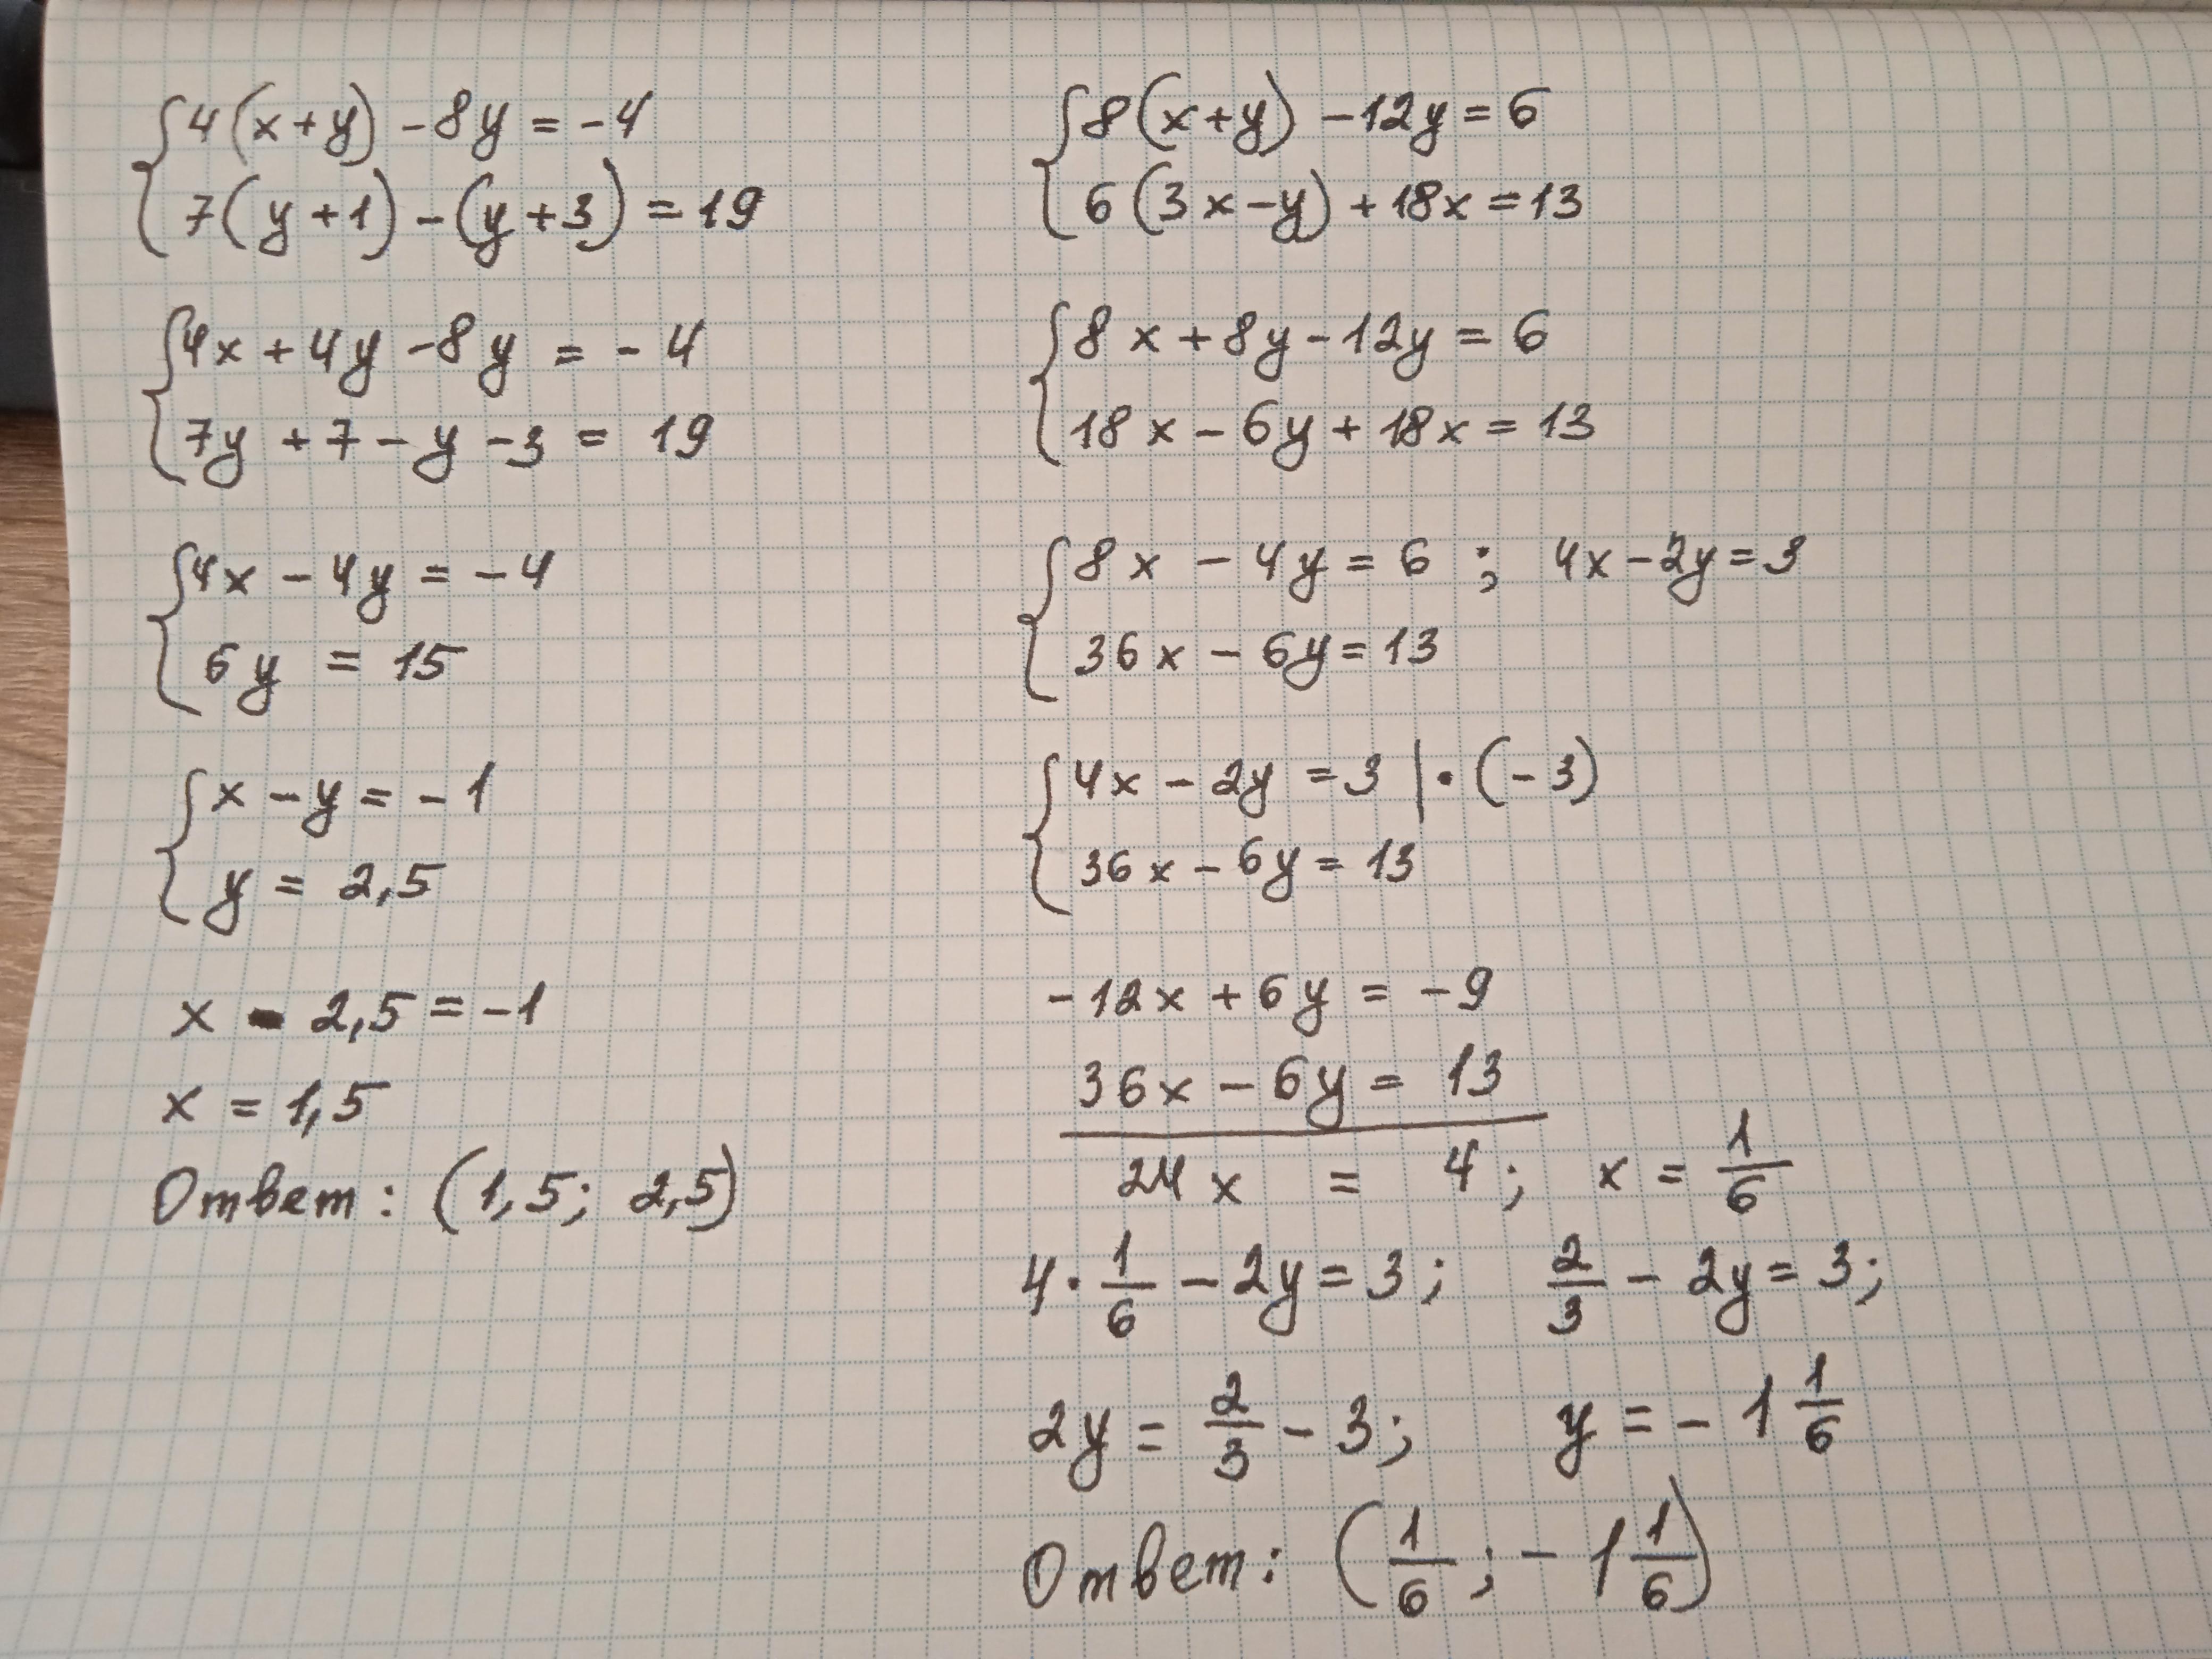 4(x+y) - 8y = -4
7(y+1) - (y+3) = 19
4x + 4y - 8y = - 4
7y + 7 - y - 3 = 19
4x - 4y = - 4
6y = 15
x - y = - 1
y = 2,5
x - 2,5 = -1
x = 1,5
Ответ: (1,5; 2,5)
8(x+y) - 12y = 6
6(3x-y) + 18x = 13
8x + 8y - 12y = 6
18x - 6y + 18x = 13
8x - 4y = 6 ; 4x - 2y = 3
36x - 6y = 13
4x - 2y = 3 | · (-3)
36x - 6y = 13
-12x + 6y = -9
36x - 6y = 13
24x = 4; x = 1/6
4 · 1/6 - 2y = 3; 2/3 - 2y = 3;
2y = 2/3 - 3; y = - 1 1/6
Ответ: (1/6; - 1 1/6)